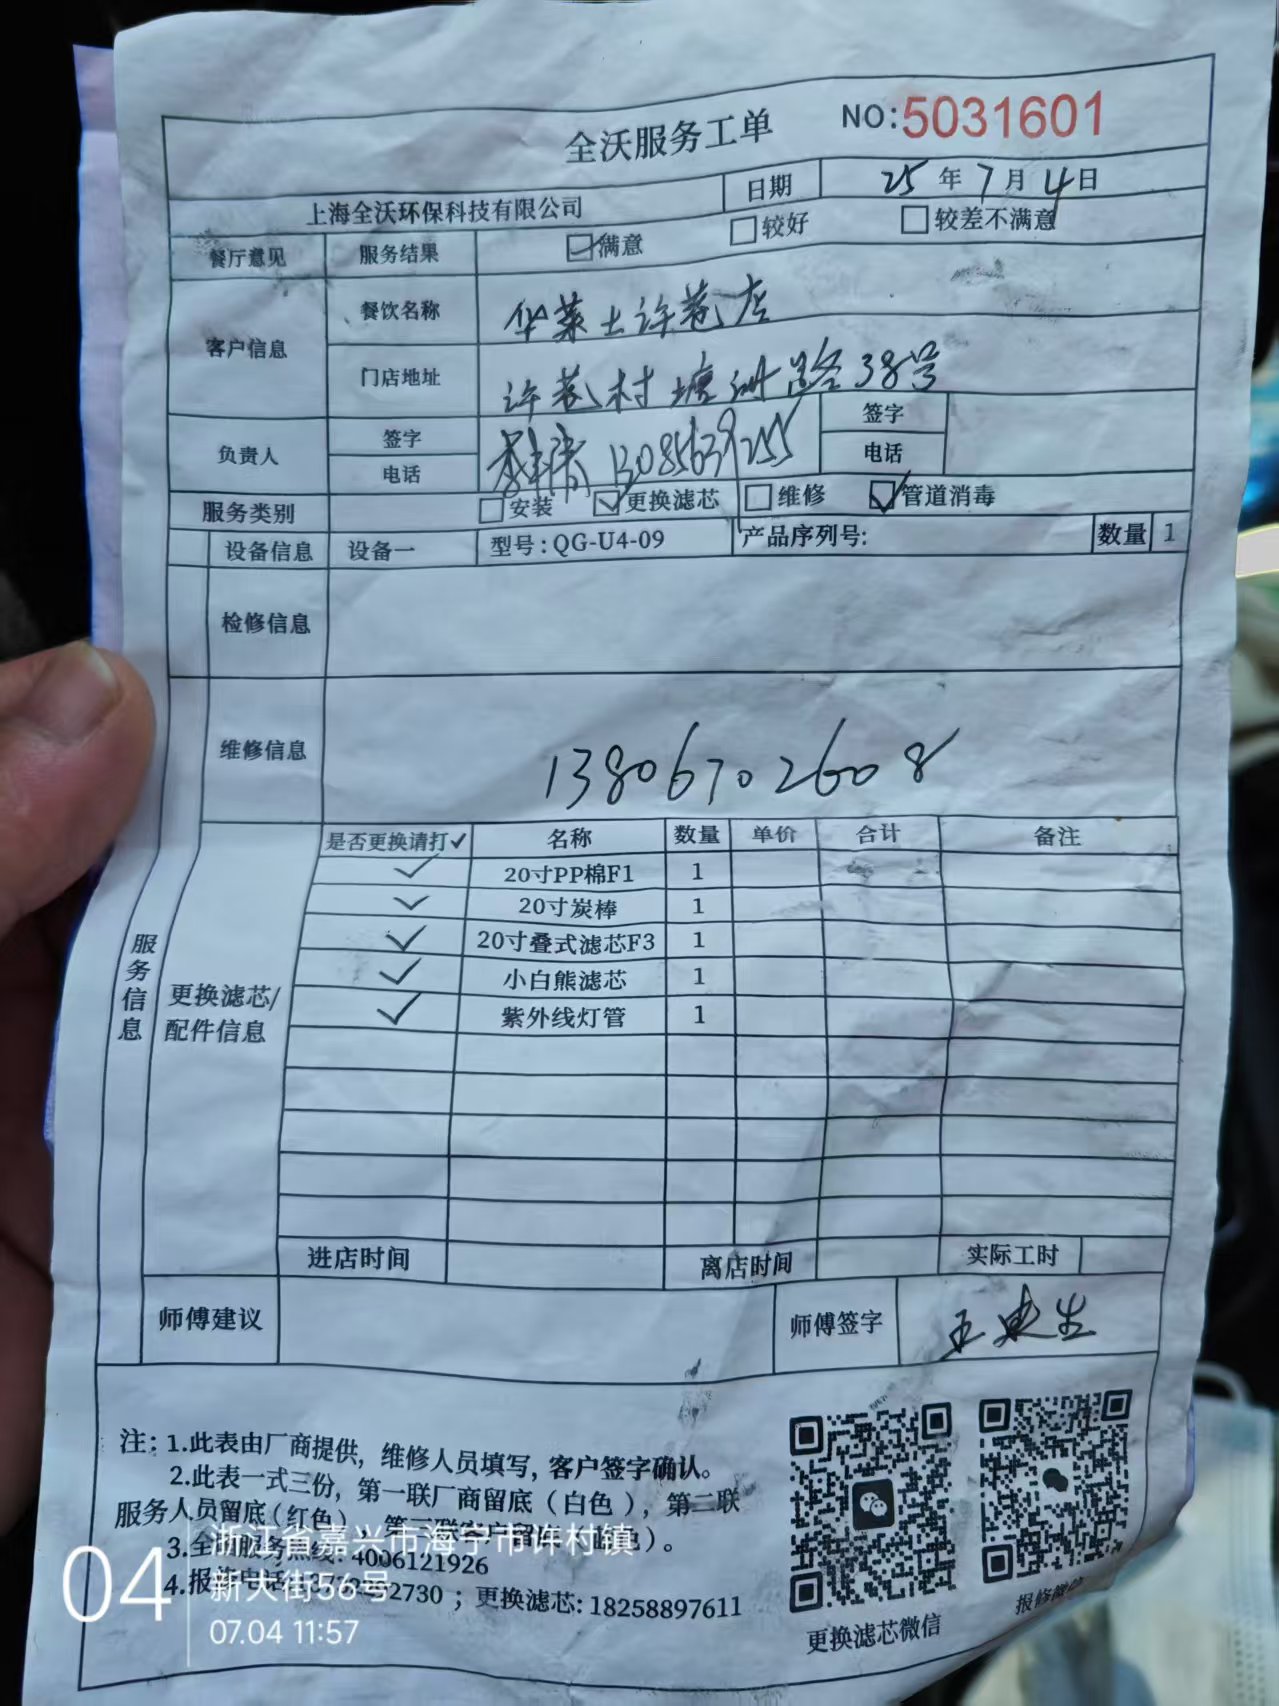 全沃服务工单 NO:5031601
上海全沃环保科技有限公司 日期 25年7月4日
餐厅意见 服务结果 满意 较好 较差不满意
客户信息 餐饮名称 华莱士许巷店
门店地址 许巷村塘洲路38号
负责人 签字 签字
电话 13085639255 电话
服务类别 安装 更换滤芯 维修 管道消毒
设备信息 设备一 型号:QG-U4-09 产品序列号: 数量 1
检修信息
维修信息 13806702608
服务信息
更换滤芯/
配件信息
是否更换请打✓ 名称 数量 单价 合计 备注
✓ 20寸PP棉F1 1
✓ 20寸炭棒 1
✓ 20寸叠式滤芯F3 1
✓ 小白熊滤芯 1
✓ 紫外线灯管 1
进店时间 离店时间 实际工时
师傅建议 师傅签字
注:1.此表由厂商提供,维修人员填写,客户签字确认。
2.此表一式三份,第一联厂商留底(白色),第二联
服务人员留底(红色)
3.全沃服务热线:4006121926
4.报修电话 2730;更换滤芯:18258897611
更换滤芯微信
报修微信
04
浙江省嘉兴市海宁市许村镇
新大街56号
07.04 11:57